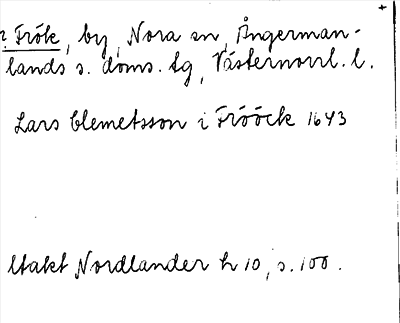 Frök, by, Nora sn, Ångerman-
lands s. doms. tg, Västernorrl. l.
Lars Clemetsson i Frööck 1643
Utakt Nordlander h 10, s. 100.